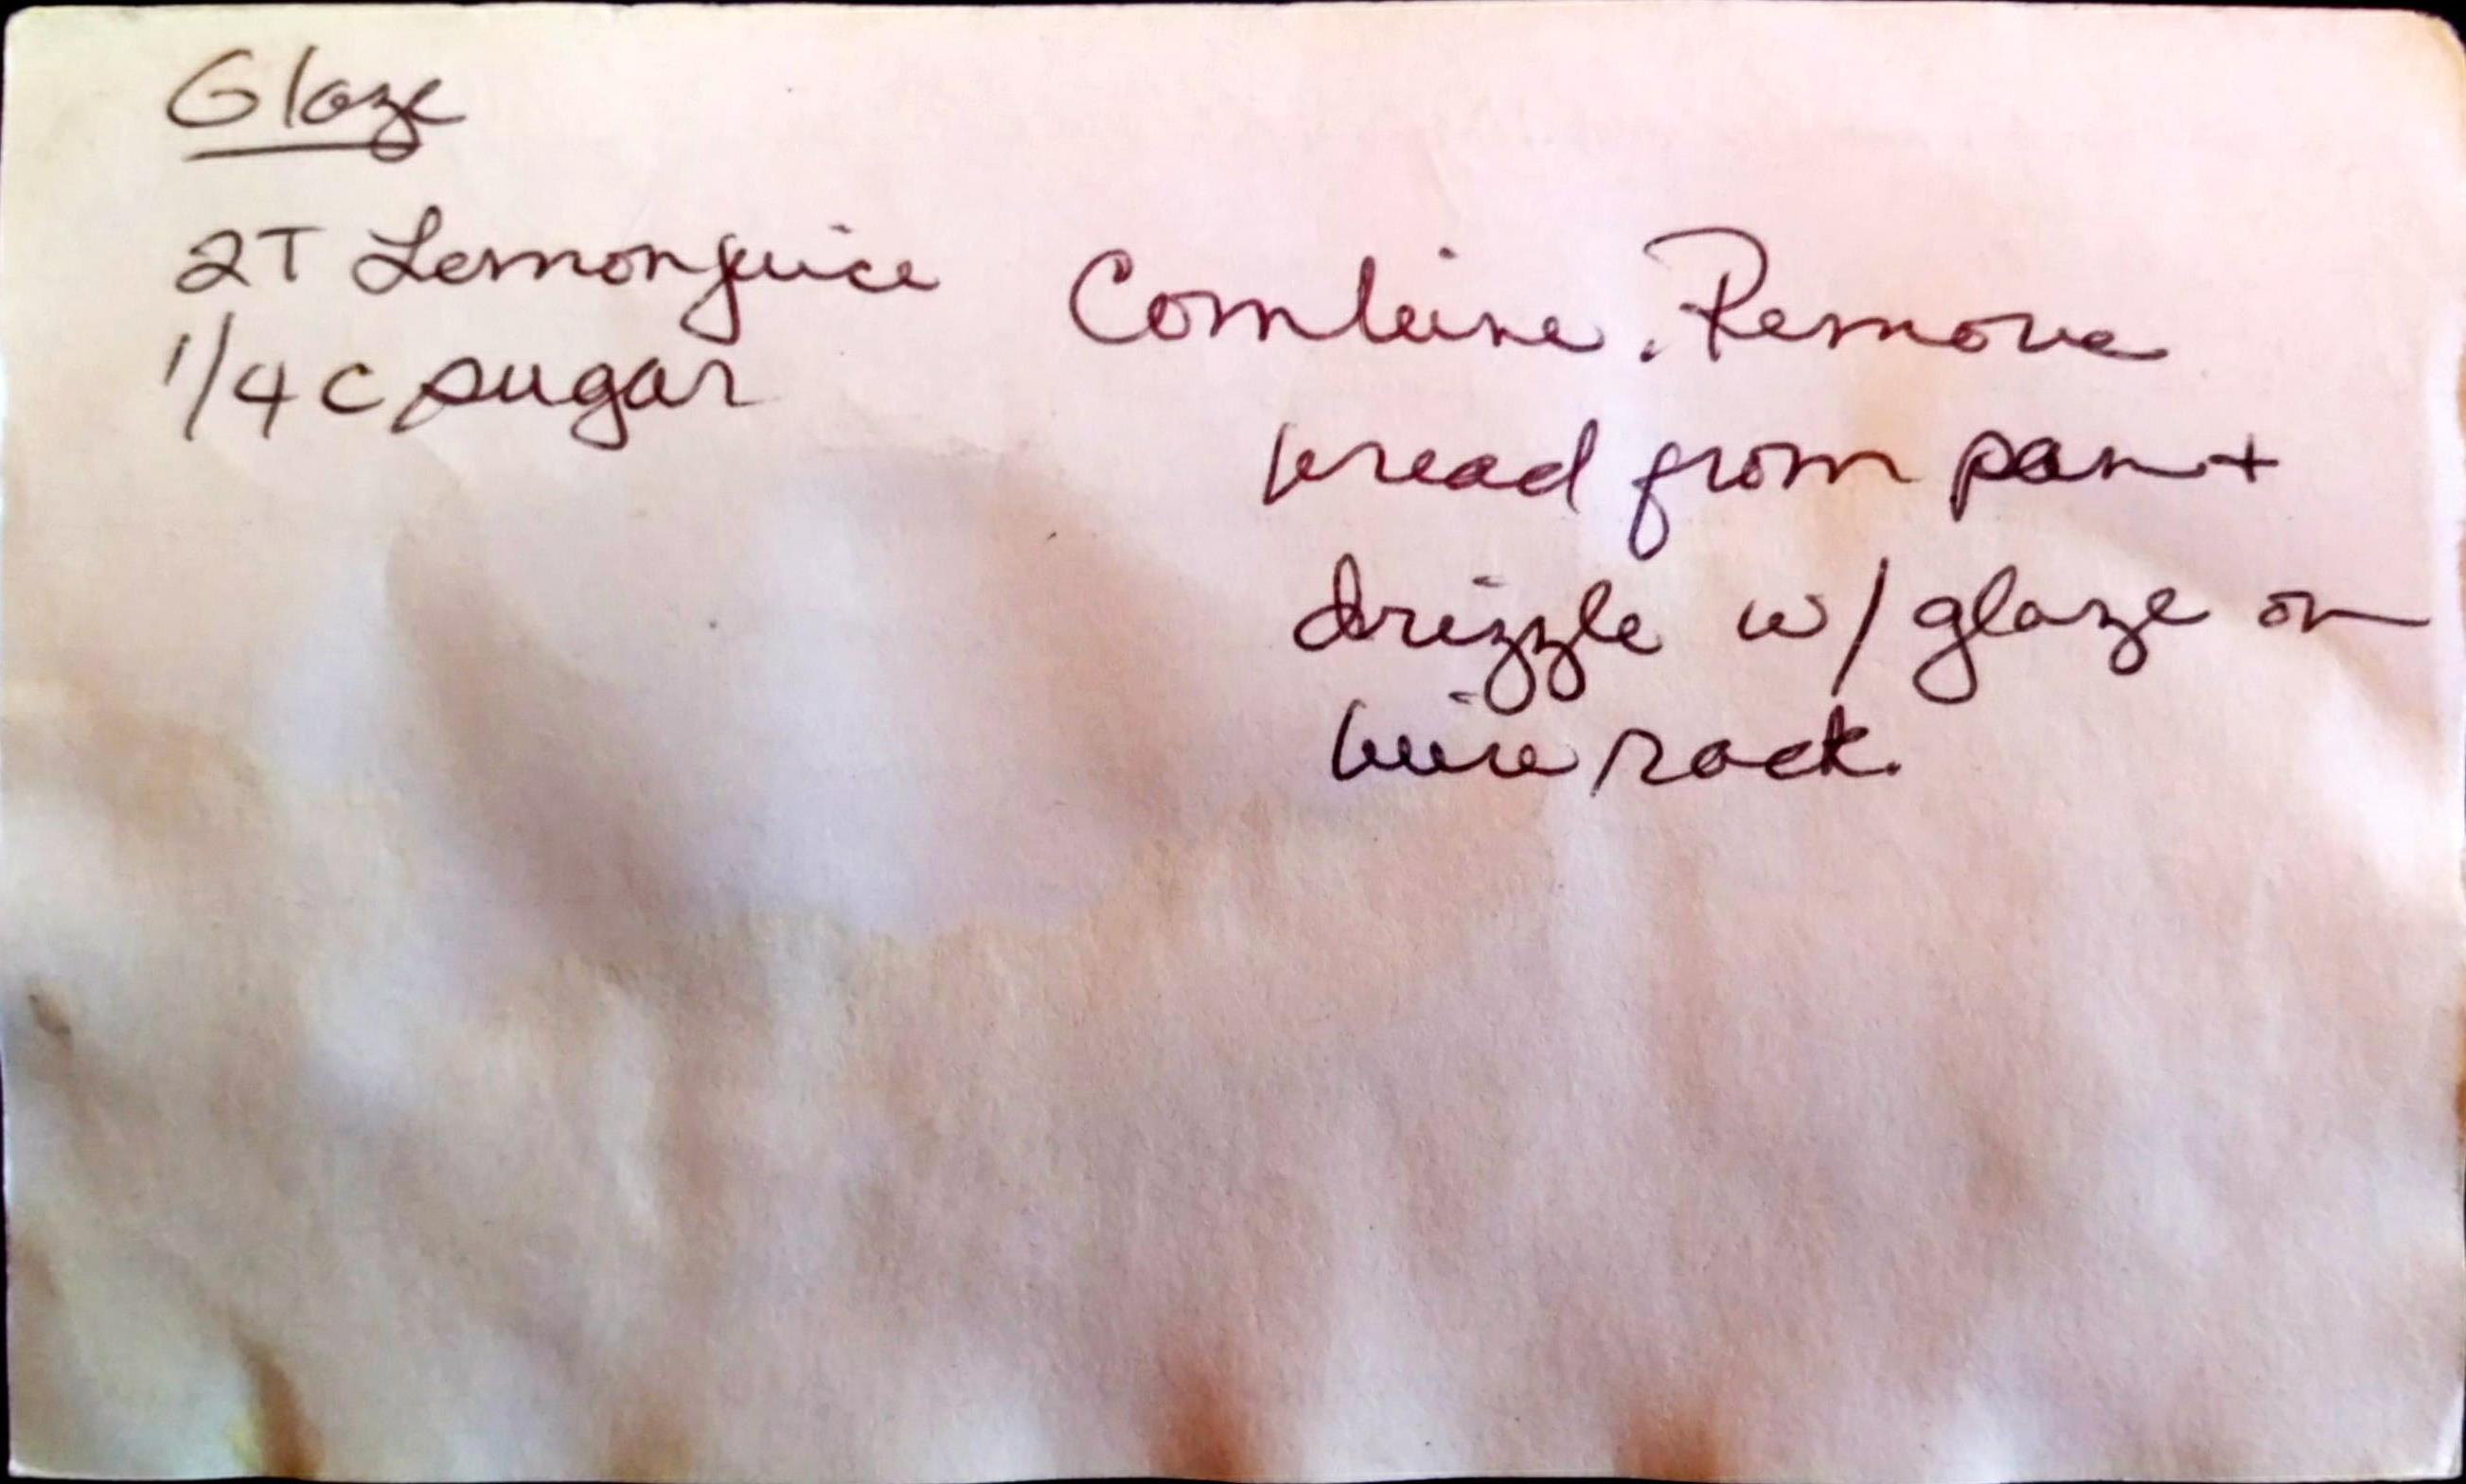 Glaze
2T Lemon juice
1/4 c sugar
Combine. Remove
bread from pan +
drizzle w/ glaze on
wire rack.